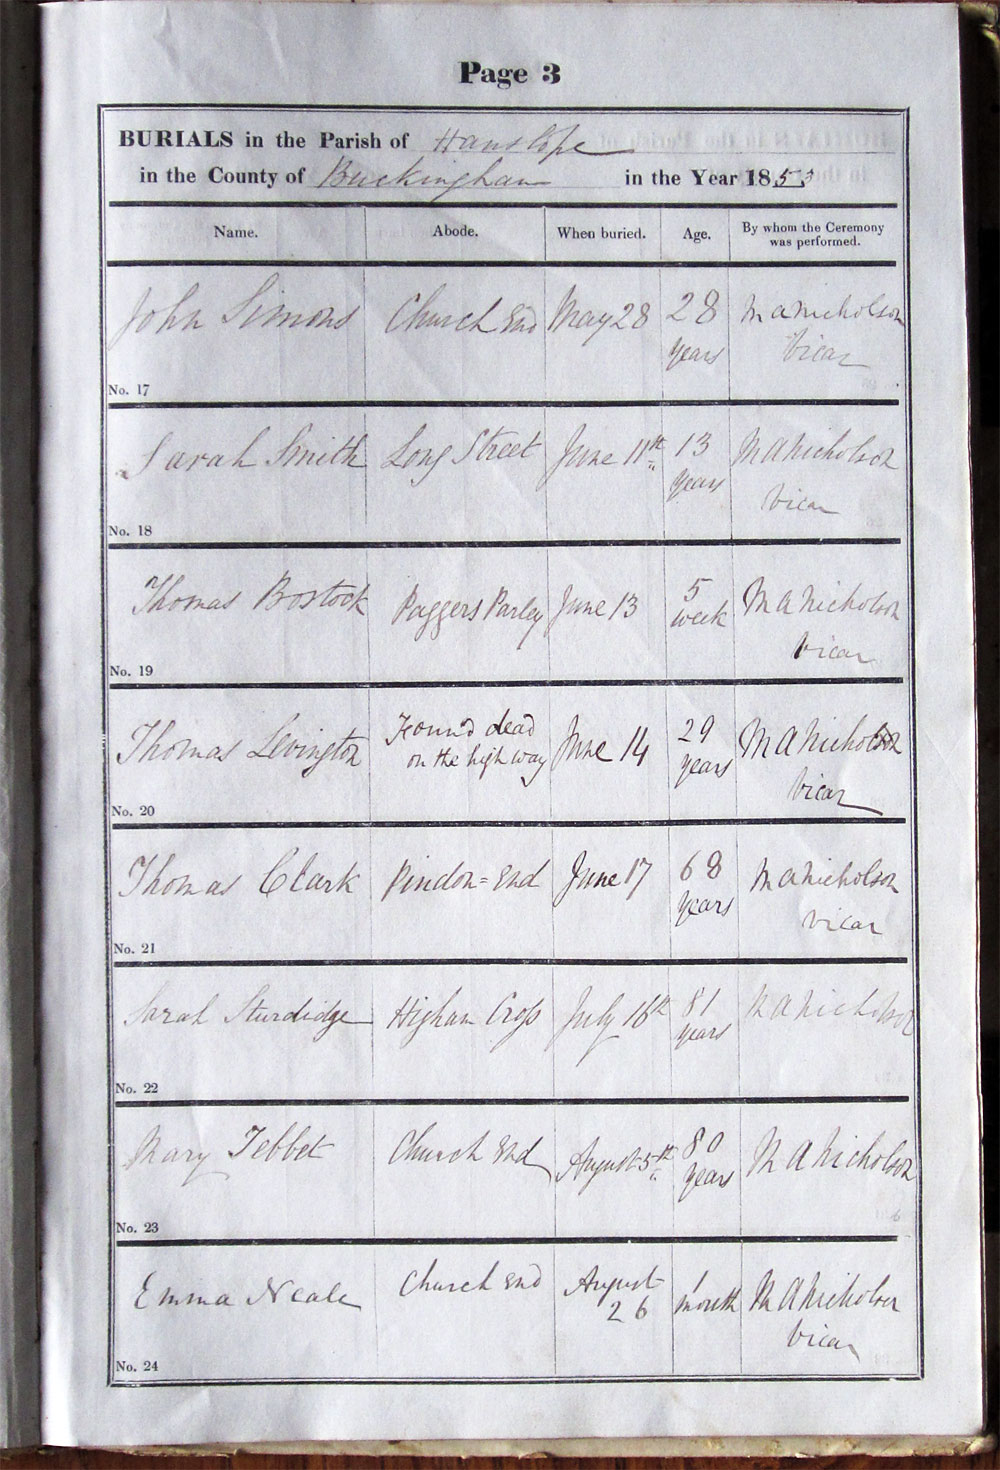 Page 3
BURIALS in the Parish of Hanslope
in the County of Buckingham in the Year 1853
Name. Abode. When buried. Age. By whom the Ceremony was performed.
John Simons Church End May 28 28 years M A Nicholson Vicar
No. 17
Sarah Smith Long Street June 11th 13 years M A Nicholson Vicar
No. 18
Thomas Bostock June 13 5 week M A Nicholson Vicar
No. 19
Thomas Levington Found dead on the high way June 14 29 years M A Nicholson Vicar
No. 20
Thomas Clark Pindon=End June 17 68 years M A Nicholson Vicar
No. 21
Sarah Sturdidge Higham Cross July 16th 81 years M A Nicholson
No. 22
Mary Tebbet Church End August 5th 80 years M A Nicholson
No. 23
Emma Neale Church End August 26 1 month M A Nicholson Vicar
No. 24